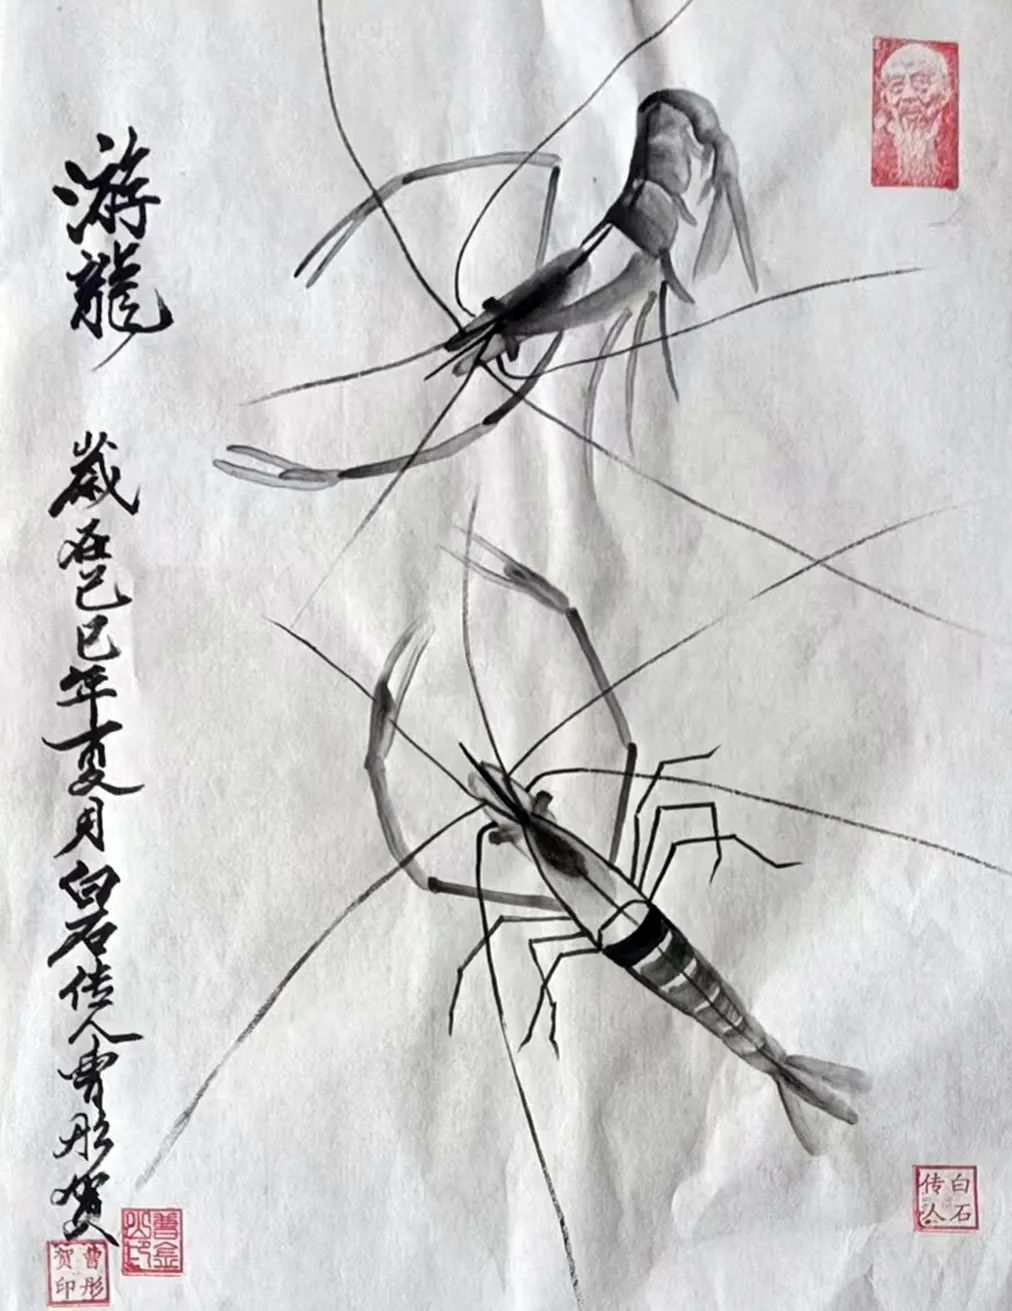 游龍
歲在己巳年夏月白石传人曹彤贺
曹彤
贺印
白石
传人